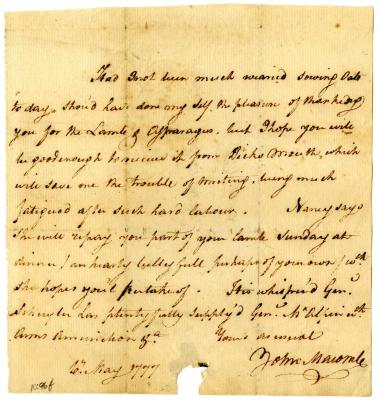 Had I not been much wearied sowing Oats
to day, shou'd have done my self the pleasure of thanking
you for the Lamb & Asparagus, but I hope you will
be good enough to receive it from Dicks Mouth, which
will save me the trouble of writing, being much
fatigued after such hard labour. Nancy says
She will repay you part of your lamb Sunday at
dinner / an hearty belly full perhaps of your own / wch
She hopes you'll partake of. It is whisper'd Genl
Schuyler has plentyfully supply'd Genl with
Arms Amunition &ca
Yours as usual
6th May 1777
John Macomb